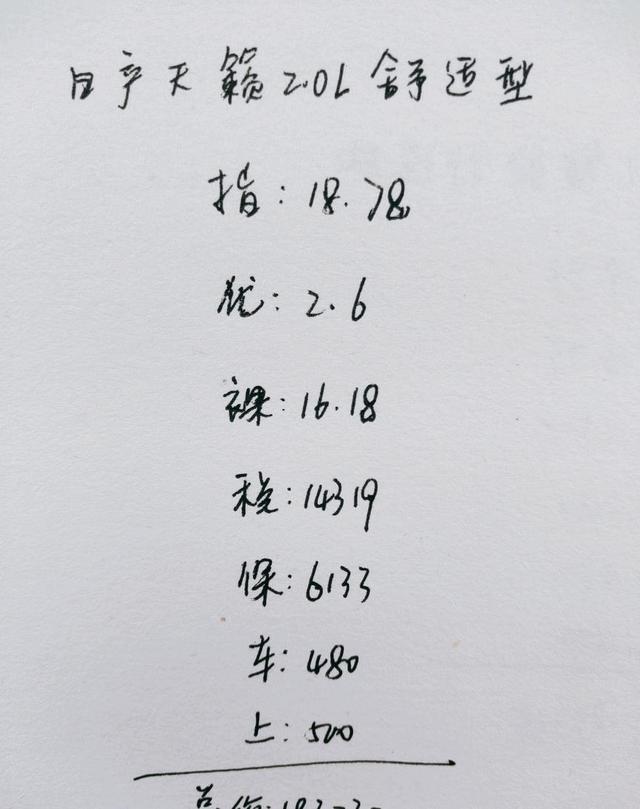 日产天籁2.0L舒适型
指:18.78
优:2.6
裸:16.18
税:14319
保:6133
车:480
上:500